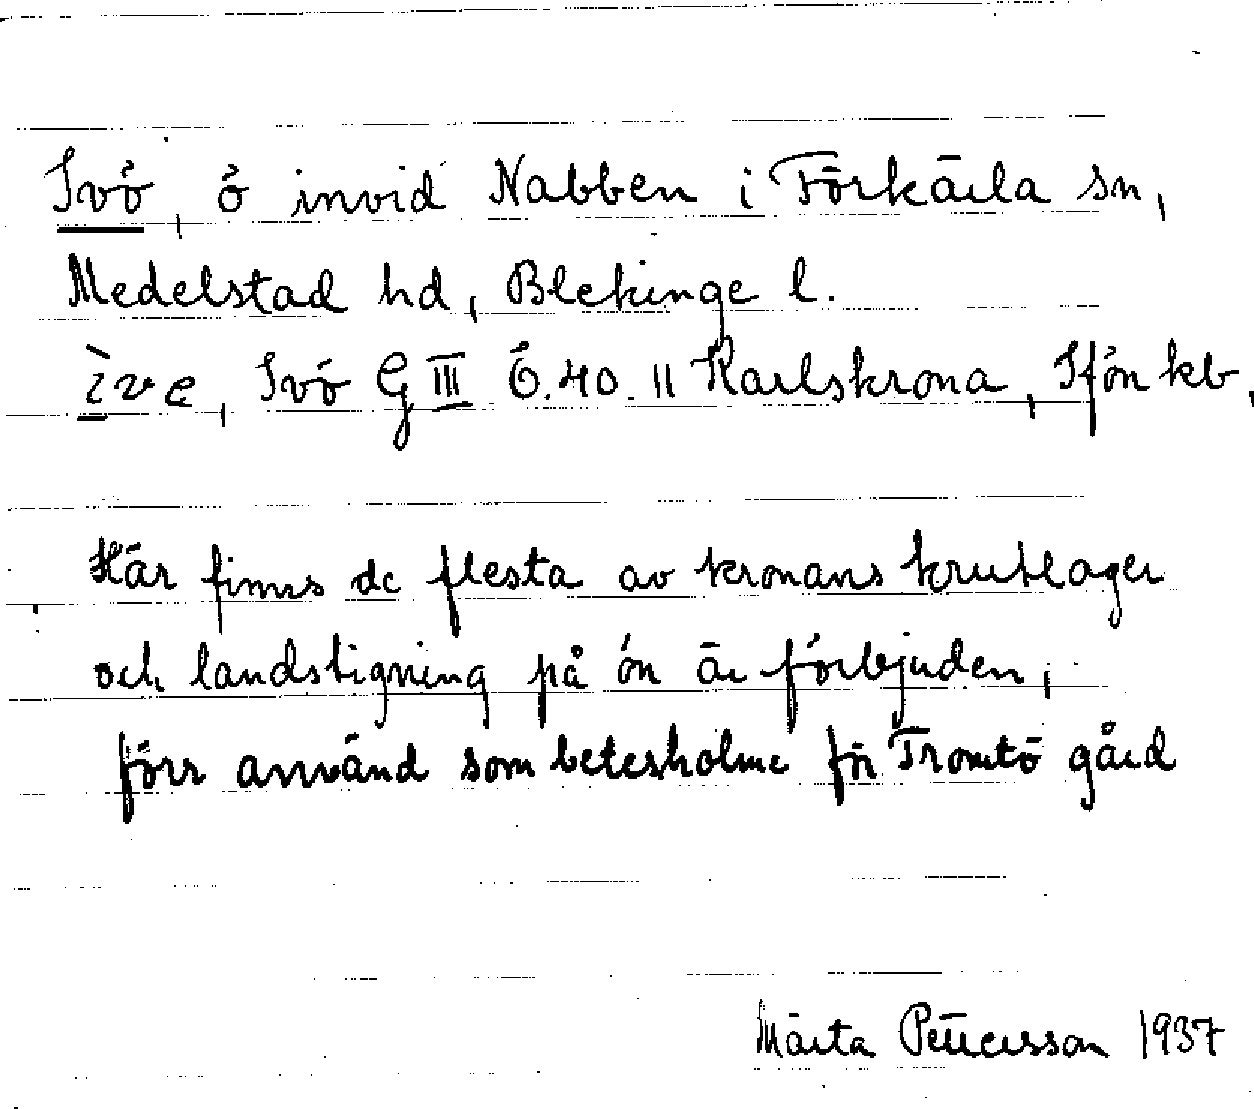 Ivö, ö invid Nabben i Förkärla sn,
Medelstad hd, Blekinge l.
ìve, Ivö G III Ö. 40. 11 Karlskrona, Ifön kb,
Här finns de flesta av kronans krutlager
och landstigning på ön är förbjuden,
förr använd som betesholme för Tromtö gård
Märta Pettersson 1937